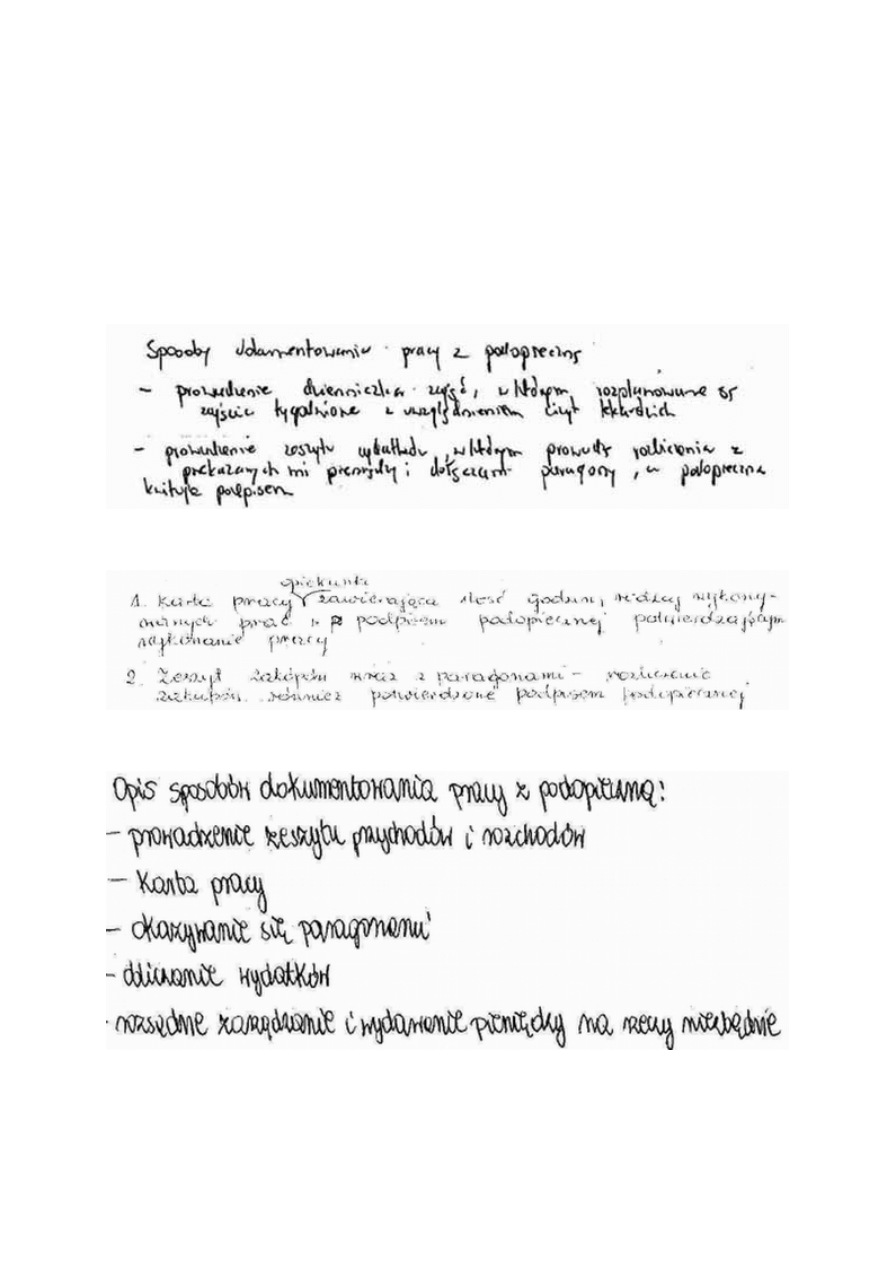 Sposoby dokumentowania pracy z podopieczną
- prowadzenie dzienniczka zajęć, w którym rozplanowane są
zajęcia tygodniowe z uwzględnieniem wizyt lekarskich
- prowadzenie zeszytu wydatków, w którym prowadzę rozliczenia z
przekazanych mi pieniędzy i dołączam paragony, a podopieczna
podpisem
opiekunki
1. Karta pracy zawierająca ilość godzin, rodzaj wykony-
wanych prac z podpisem podopiecznej potwierdzającym
wykonanie pracy
2. Zeszyt zakupów wraz z paragonami - rozliczenie
zakupów również potwierdzone podpisem podopiecznej
Opis sposobów dokumentowania pracy z podopieczną:
- prowadzenie zeszytu przychodów i rozchodów
- Karta pracy
- okazywanie się paragonami
- obliczanie wydatków
- rozsądne zarządzanie i wydawanie pieniędzy na rzeczy niezbędne